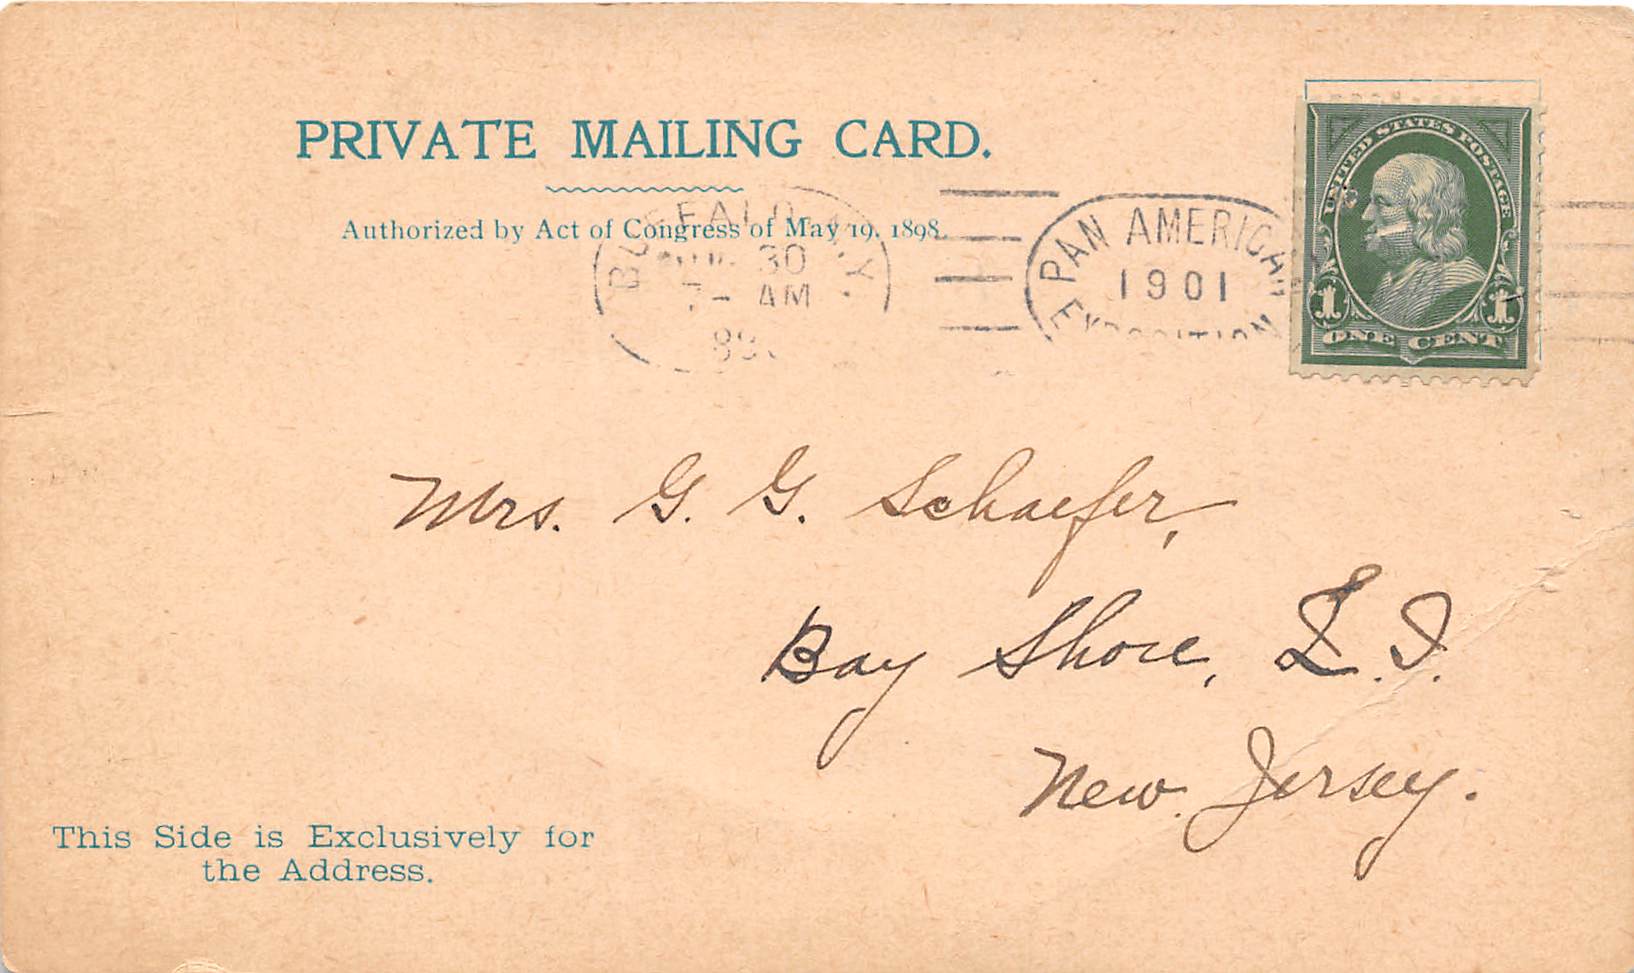 PRIVATE MAILING CARD.
Authorized by Act of Congress of May 19, 1898.
BUFFALO N.Y.
30
7 - AM
PAN AMERICAN
1901
EXPOSITION
UNITED STATES POSTAGE
1 1
ONE CENT
Mrs. G. G. Schaefer,
Bay Shore, L. I.
New Jersey.
This Side is Exclusively for
the Address.